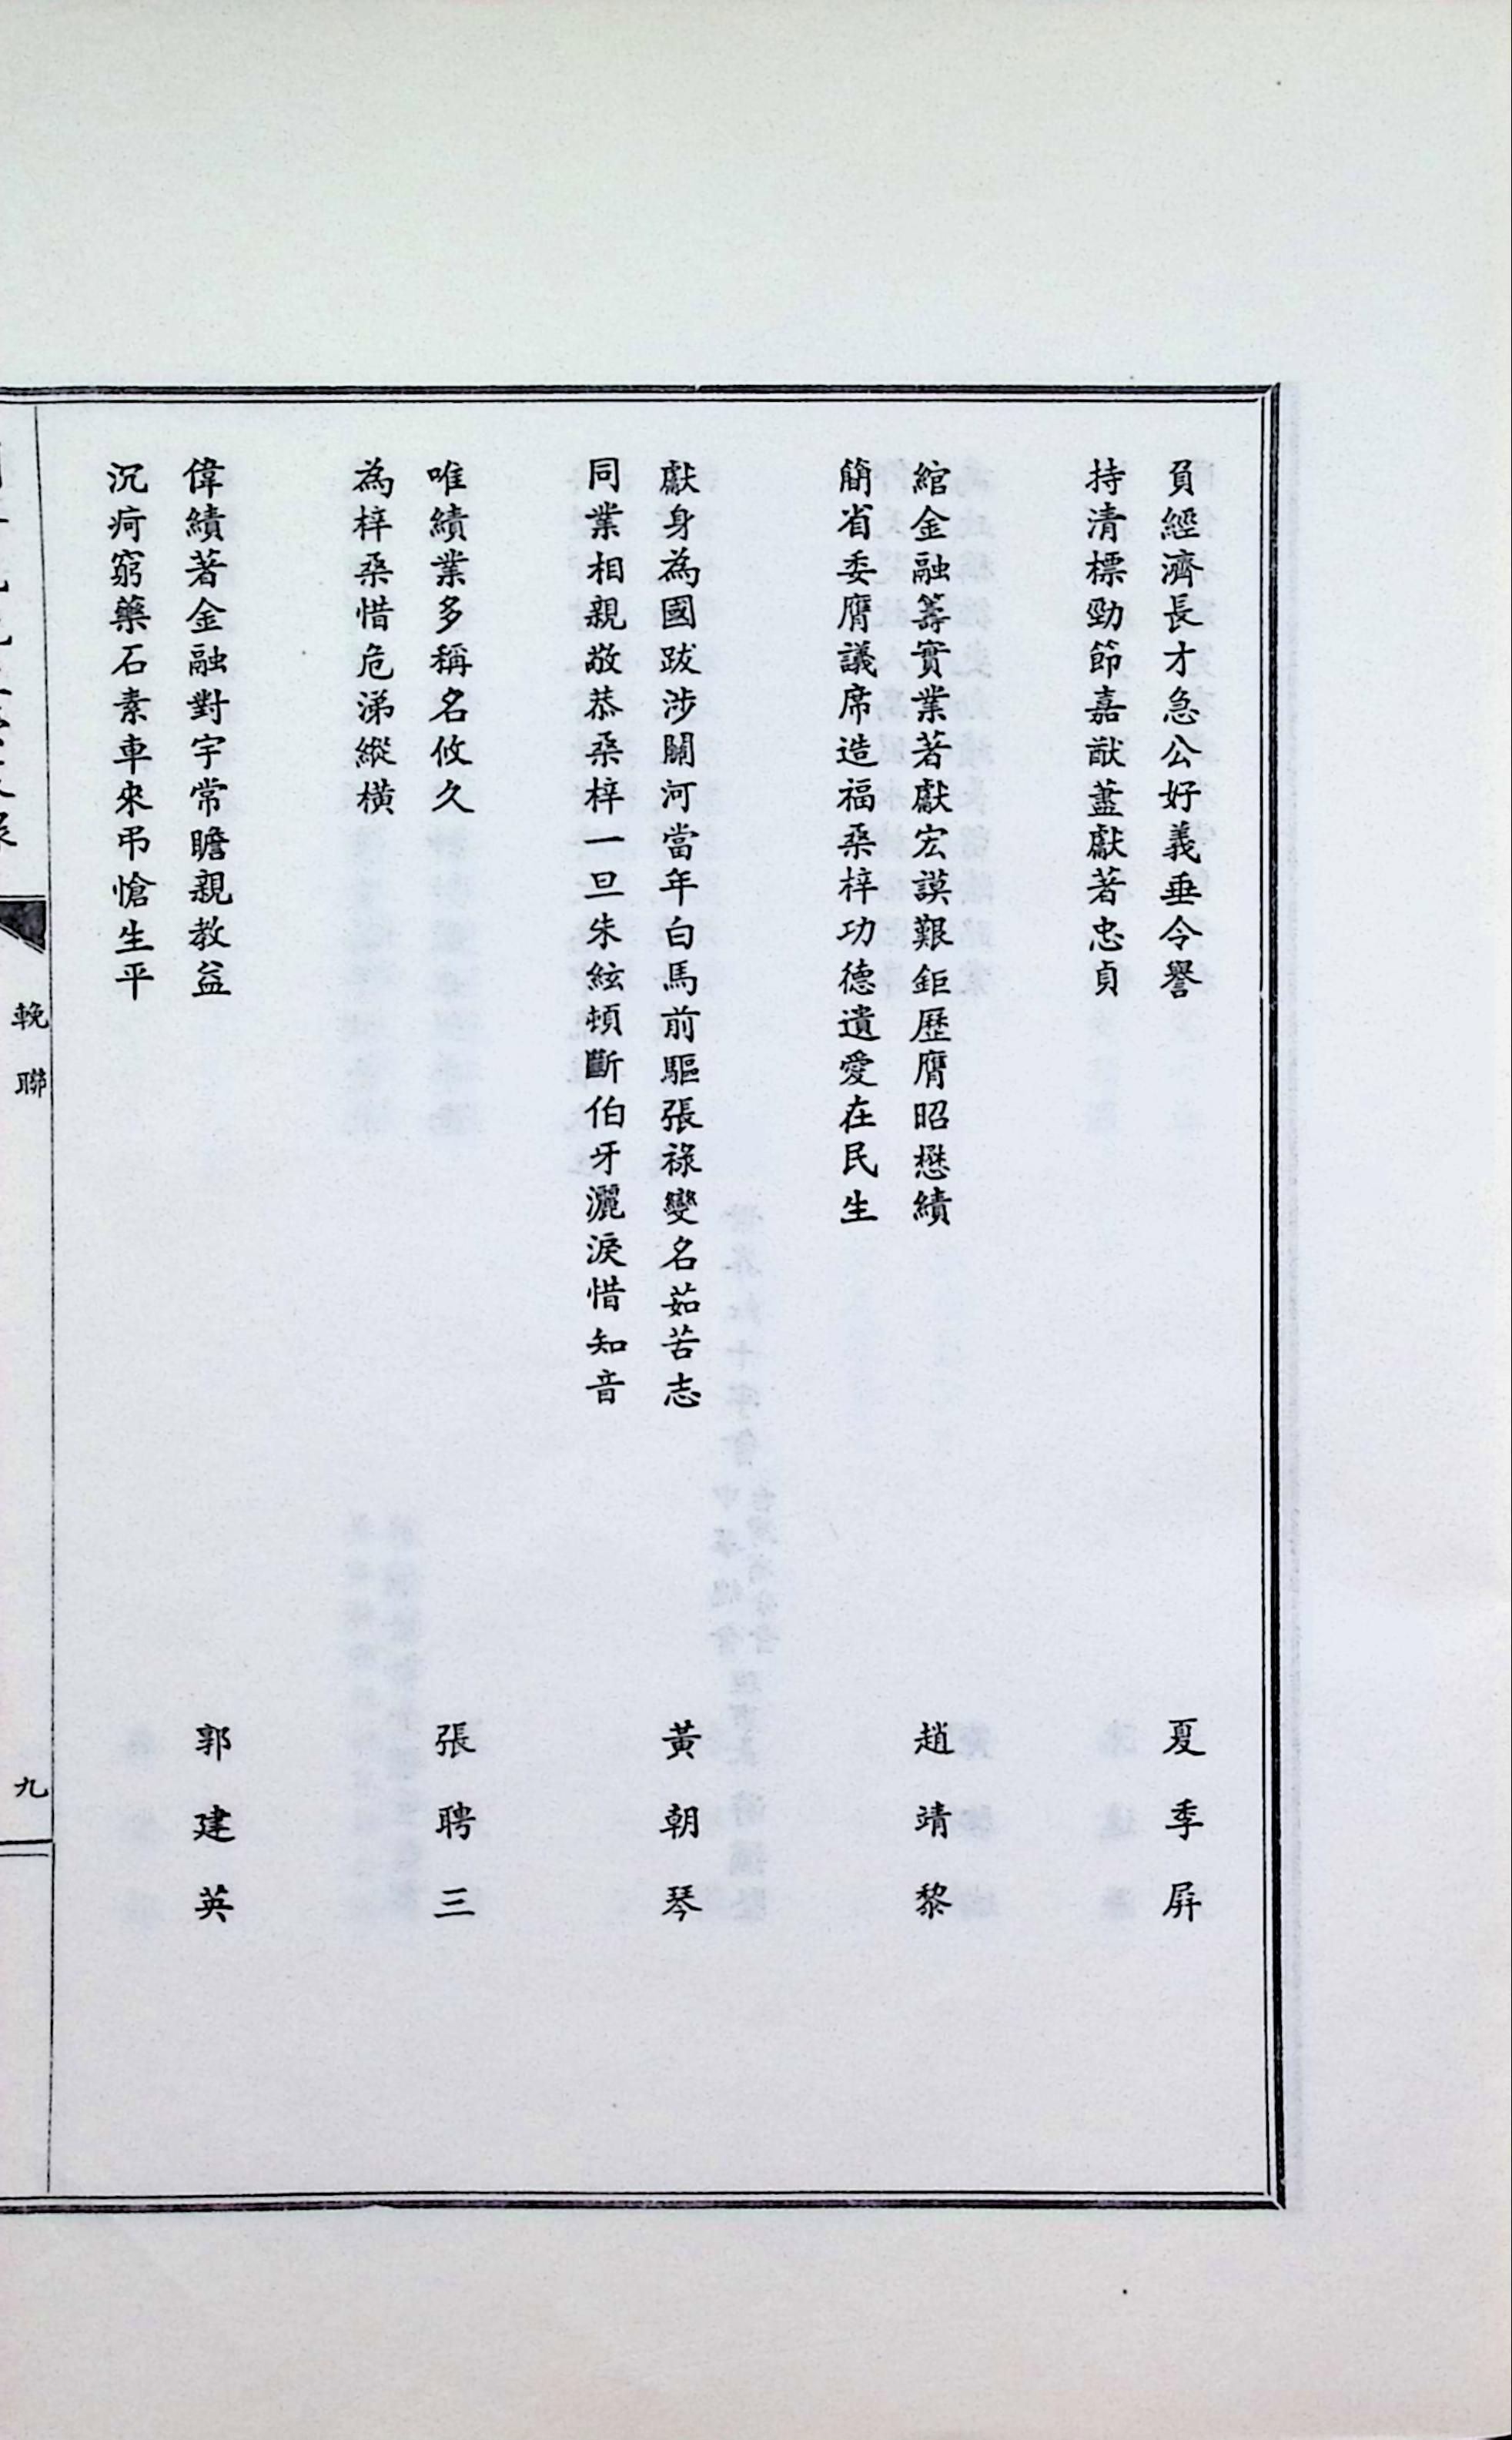 負經濟長才急公好義垂令譽
持清標勁節嘉猷藎獻著忠貞
夏季屏
綰金融籌實業著獻宏謨艱鉅歷膺昭懋績
簡省委膺議席造福桑梓功德遺愛在民生
趙靖黎
獻身為國跋涉關河當年白馬前驅張祿變名茹苦志
同業相親敬恭桑梓一旦朱絃頓斷伯牙灑淚惜知音
黃朝琴
唯績業多稱名攸久
為梓桑惜危涕縱橫
張聘三
偉績著金融對宇常瞻親教益
沉疴窮藥石素車來弔愴生平
郭建英
輓聯
九